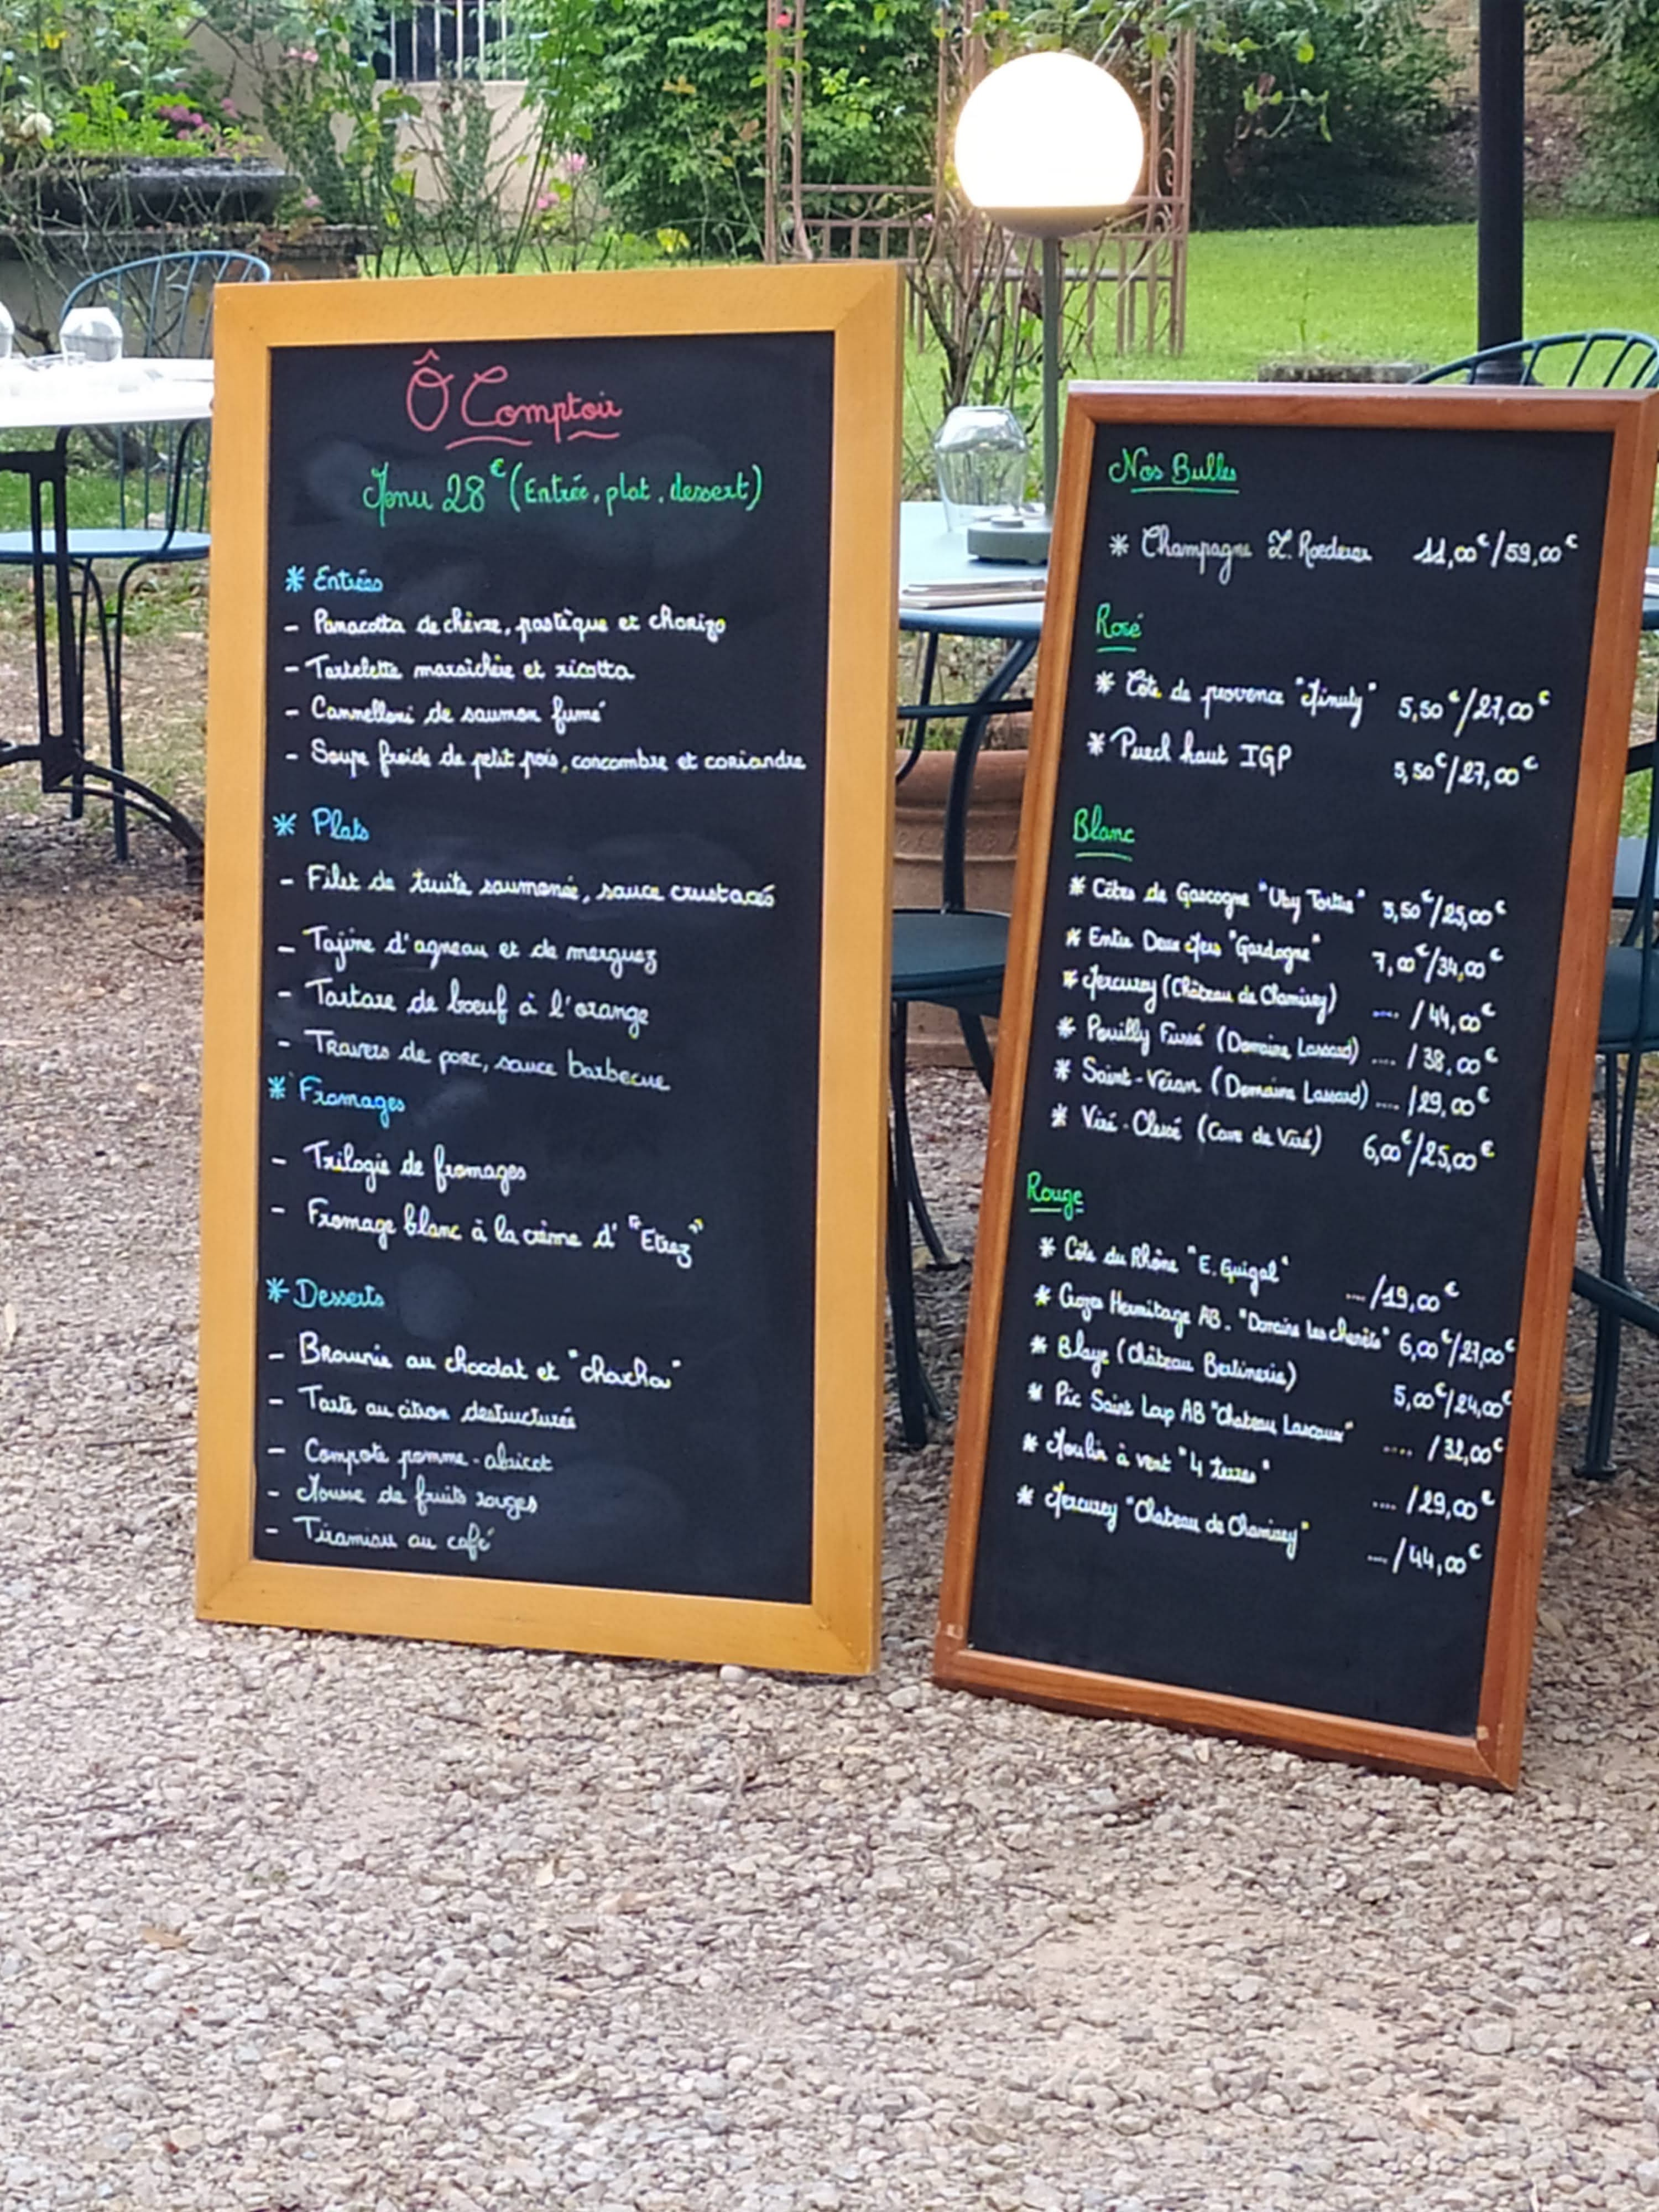 Ô Comptoir
Menu 28€ (Entrée, plat, dessert)
* Entrées
- Panacotta de chèvre, pastèque et chorizo
- Tartelette maraîchère et ricotta
- Cannelloni de saumon fumé
- Soupe froide de petit pois, concombre et coriandre
* Plats
- Filet de truite saumonée, sauce crustacés
- Tajine d'agneau et de merguez
- Tartare de boeuf à l'orange
- Travers de porc, sauce barbecue
* Fromages
- Trilogie de fromages
- Fromage blanc à la crème d' "Etrez"
* Desserts
- Brownie au chocolat et "chachou"
- Tarte au citron destructurée
- Compote pomme-abricot
- Mousse de fruits rouges
- Tiramisu au café
Nos Bulles
* Champagne L. Roederer 11,00€/59,00€
Rosé
* Côte de provence "Minuty" 5,50€/27,00€
* Puech haut IGP 5,50€/27,00€
Blanc
* Côtes de Gascogne "Uby Tortue" 5,50€/25,00€
* Entre Deux Mers "Gardogne" 7,00€/34,00€
* Mercurey (Château de Chamirey) .... / 44,00€
* Pouilly Fuissé (Domaine Lassard) .... / 38,00€
* Saint-Véran (Domaine Lassard) .... /29,00€
* Viré-Clessé (Cave de Viré) 6,00€/25,00€
Rouge
* Côte du Rhône "E. Guigal" .../19,00€
* Crozes Hermitage AB. "Domaine les chenêts" 6,00€/27,00€
* Blaye (Château Bertinerie) 5,00€/24,00€
* Pic Saint Loup AB "Chateau Lascaux" .... / 32,00€
* Moulin à vent "4 terres" .... /29,00€
* Mercurey "Chateau de Chamirey" .... /44,00€